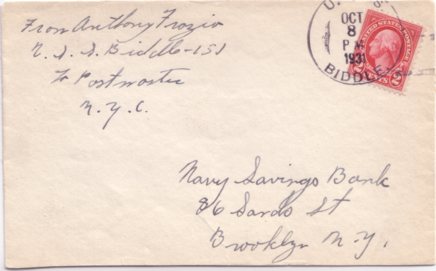 From Anthony Frozio
U.S.S. Biddle-151
℅ Postmaster
N.Y.C.
U.
OCT
8
P.M.
1931
BIDDLE
UNITED STATES POSTAGE
2
2
Navy Savings Bank
86 Sands St
Brooklyn N.Y.